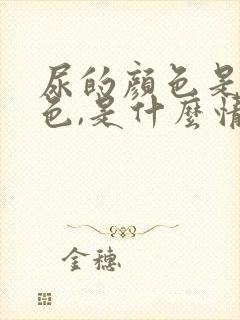 尿的顏色是
色,是什麼情
金穗